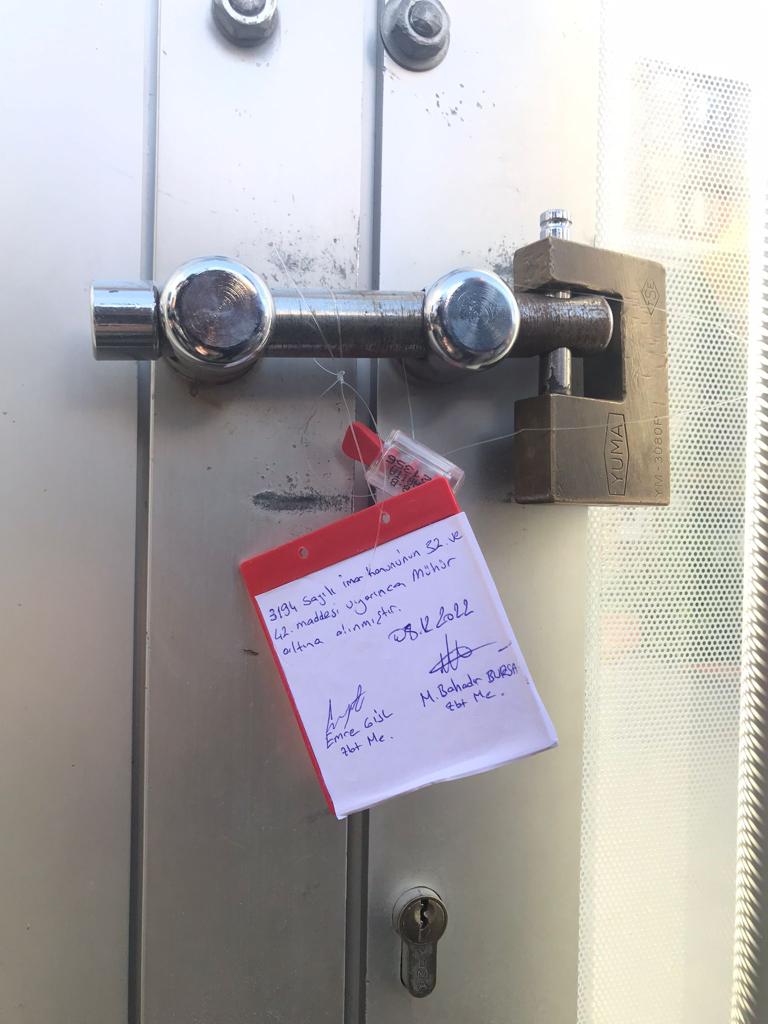 YUMA
YM 3080P
3194 Sayılı imar Kanununun 32 ve
42. maddesi uyarınca Mühür
altına alınmıştır.
08.12.2022
M. Bahadır BURSA
Zbt Me.
Emre
Zbt Me.